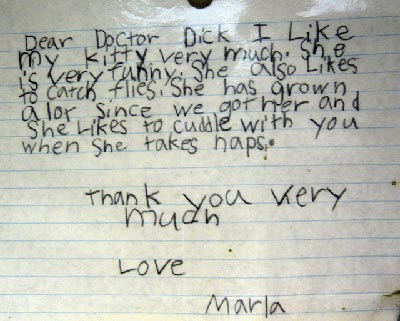 Dear Doctor Dick I Like
my kitty very much. She
is very funny. She also Likes
to catch flies. She has grown
a lor since we got her and
She Likes to cuddle with you
when she takes naps.
Thank you very
much
Love
Marla